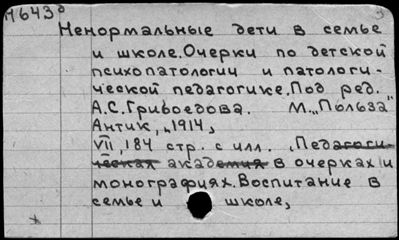 М643д
Ненормальные дети в семье
и школе. Очерки по детской
психопатологии и патологи-
ческой педагогике. Под ред.
А.С. Грибоедова. М. „Польза"
Антик, „1914„
VII, 184 стр. с илл. „Педагоги-
ческая академия в очерках и
монографиях. Воспитание в
семье и школе„